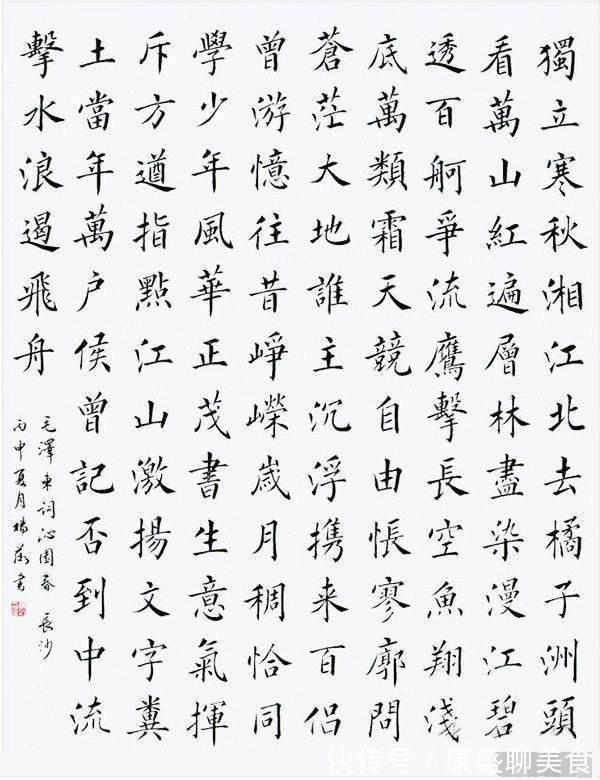 獨立寒秋湘江北去橘子洲頭
看萬山紅遍層林盡染漫江碧
透百舸爭流鷹擊長空魚翔淺
底萬類霜天競自由悵寥廓問
蒼茫大地誰主沉浮携来百侣
曾游憶往昔崢嶸歲月稠恰同
學少年風華正茂書生意氣揮
斥方遒指點江山激揚文字糞
土當年萬户侯曾記否到中流
擊水浪遏飛舟
毛澤東詞沁園春 長沙
丙申夏月楊書
快传号/康盛聊美食